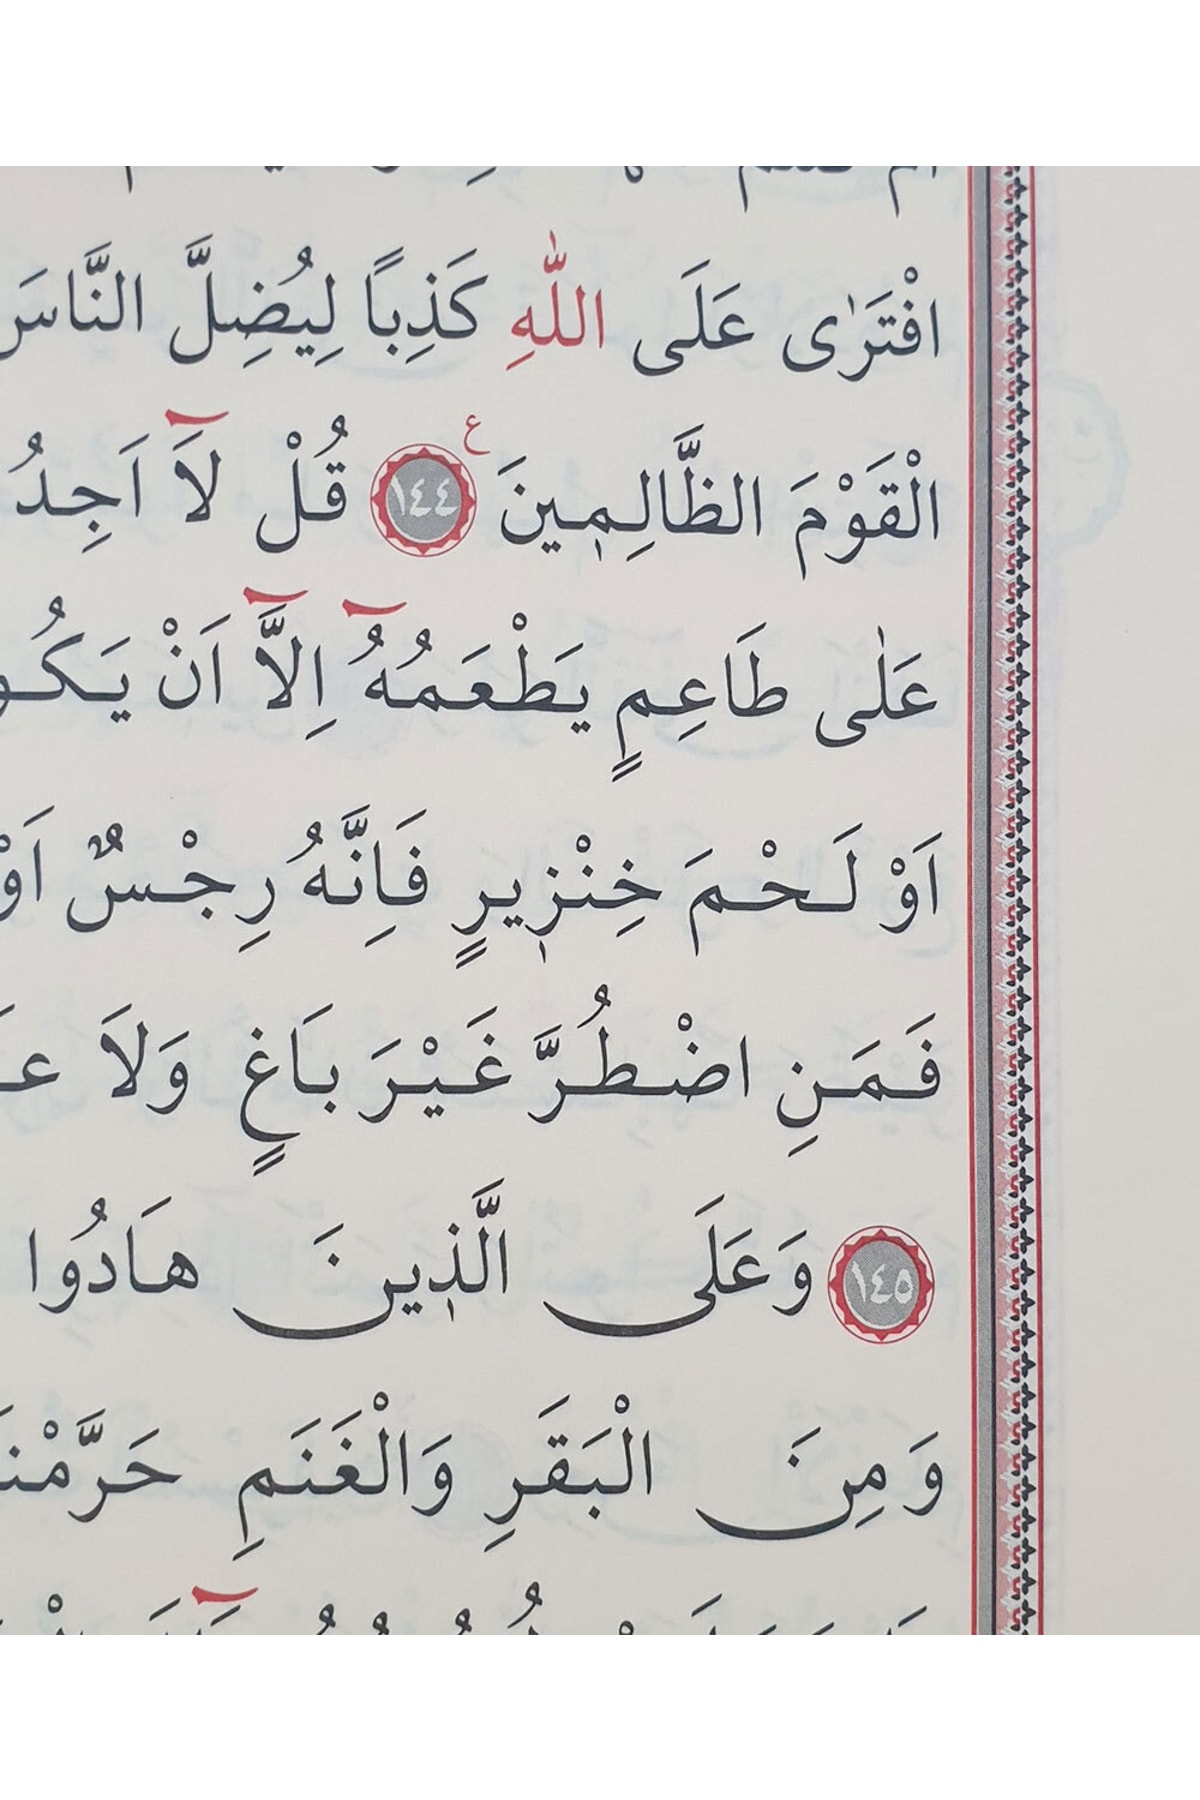 افْتَرٰى عَلَى اللّٰهِ كَذِبًا لِيُضِلَّ النَّاسَ
الْقَوْمَ الظَّالِم۪ينَ ع ﴿١٤٤﴾ قُلْ لَٓا اَجِدُ
عَلٰى طَاعِمٍ يَطْعَمُهُٓ اِلَّٓا اَنْ يَكُو
اَوْ لَحْمَ خِنْز۪يرٍ فَاِنَّهُ رِجْسٌ اَوْ
فَمَنِ اضْطُرَّ غَيْرَ بَاغٍ وَلَا عَ
﴿١٤٥﴾ وَعَلَى الَّذ۪ينَ هَادُوا
وَمِنَ الْبَقَرِ وَالْغَنَمِ حَرَّمْنَا